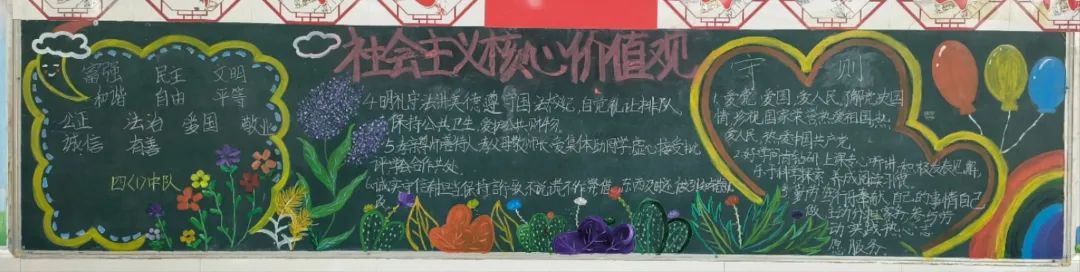 社会主义核心价值观
富强 民主 文明
和谐 自由 平等
公正 法治 爱国 敬业
诚信 友善
四(1)中队
4.明礼守法讲美德 遵守国法校纪,自觉礼让排队,
保持公共卫生,爱护公共财物。
5.孝亲尊师善待人 孝父母敬师长,爱集体助同学,虚心接受批
评,学会合作共处。
6.诚实守信有担当 保持言行一致,不说谎不作弊,借东西及时还,
守则
1.爱党爱国爱人民 了解党史国
情,珍视国家荣誉,热爱祖国,热
爱人民,热爱中国共产党。
2.好学多问肯钻研 上课专心听讲,积极发表见解,
乐于科学探索,养成阅读习惯。
3.勤劳笃行乐奉献 自己的事情自己
做,主动分担家务,参与劳
动实践,热心志
愿服务。